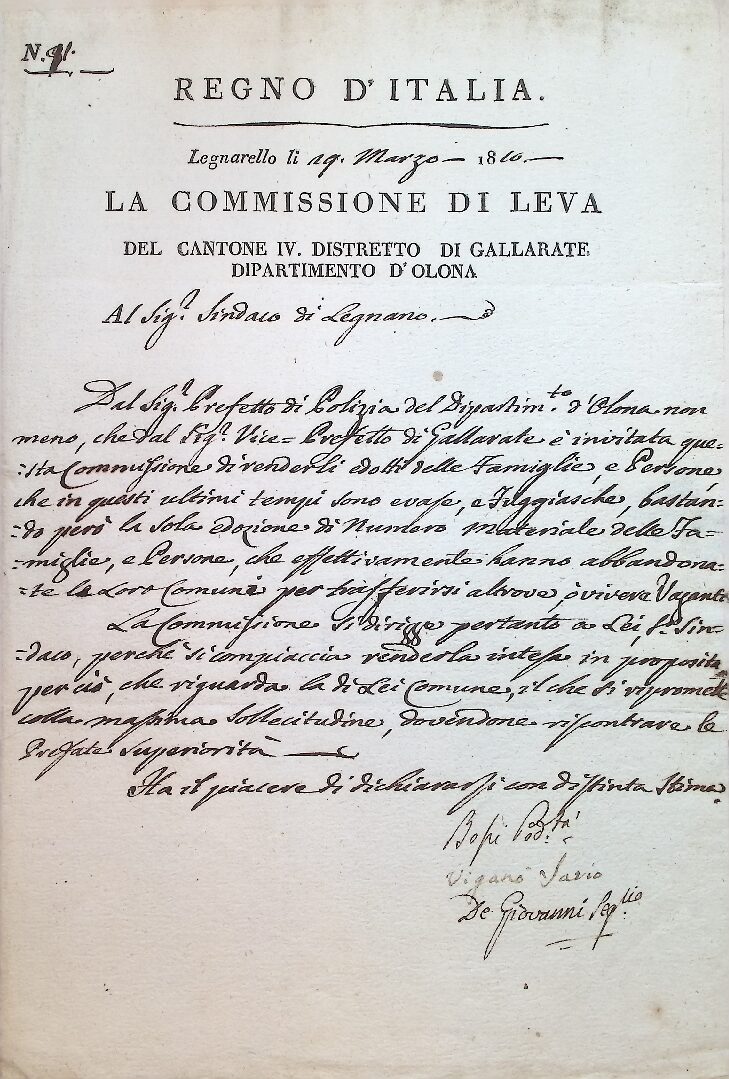 N. 91.
REGNO D'ITALIA.
Legnarello li 19. Marzo 1810.
LA COMMISSIONE DI LEVA
DEL CANTONE IV. DISTRETTO DI GALLARATE
DIPARTIMENTO D'OLONA
Al Sig.r Sindaco di Legnano.
Dal Sig.r Prefetto di Polizia del Dipartim.to d'Olona non
meno, che dal Sig.r Vice=Prefetto di Gallarate è invitata que=
=sta Commissione di renderli edotti delle Famiglie, e Persone
che in questi ultimi tempi sono evase, e Fuggiasche, bastan=
=do però la sola dozione di Numero Materiale delle Fa=
=miglie, e Persone, che effettivamente hanno abbandona=
=te le Loro Comuni per trasferirsi altrove, o vivere Vaganti
La Commissione si dirigge pertanto a Lei, S.r Sin=
=daco, perchè si compiaccia renderla intesa in proposito
per ciò, che riguarda la di Lei Comune, il che si ripromette
colla massima sollecitudine, dovendone riscontrare le
Prefate Superiorità
Ha il piacere di dichiararsi con distinta stima
Bossi Pod.tà
Viganò Savio
De Giovanni Seg.rio